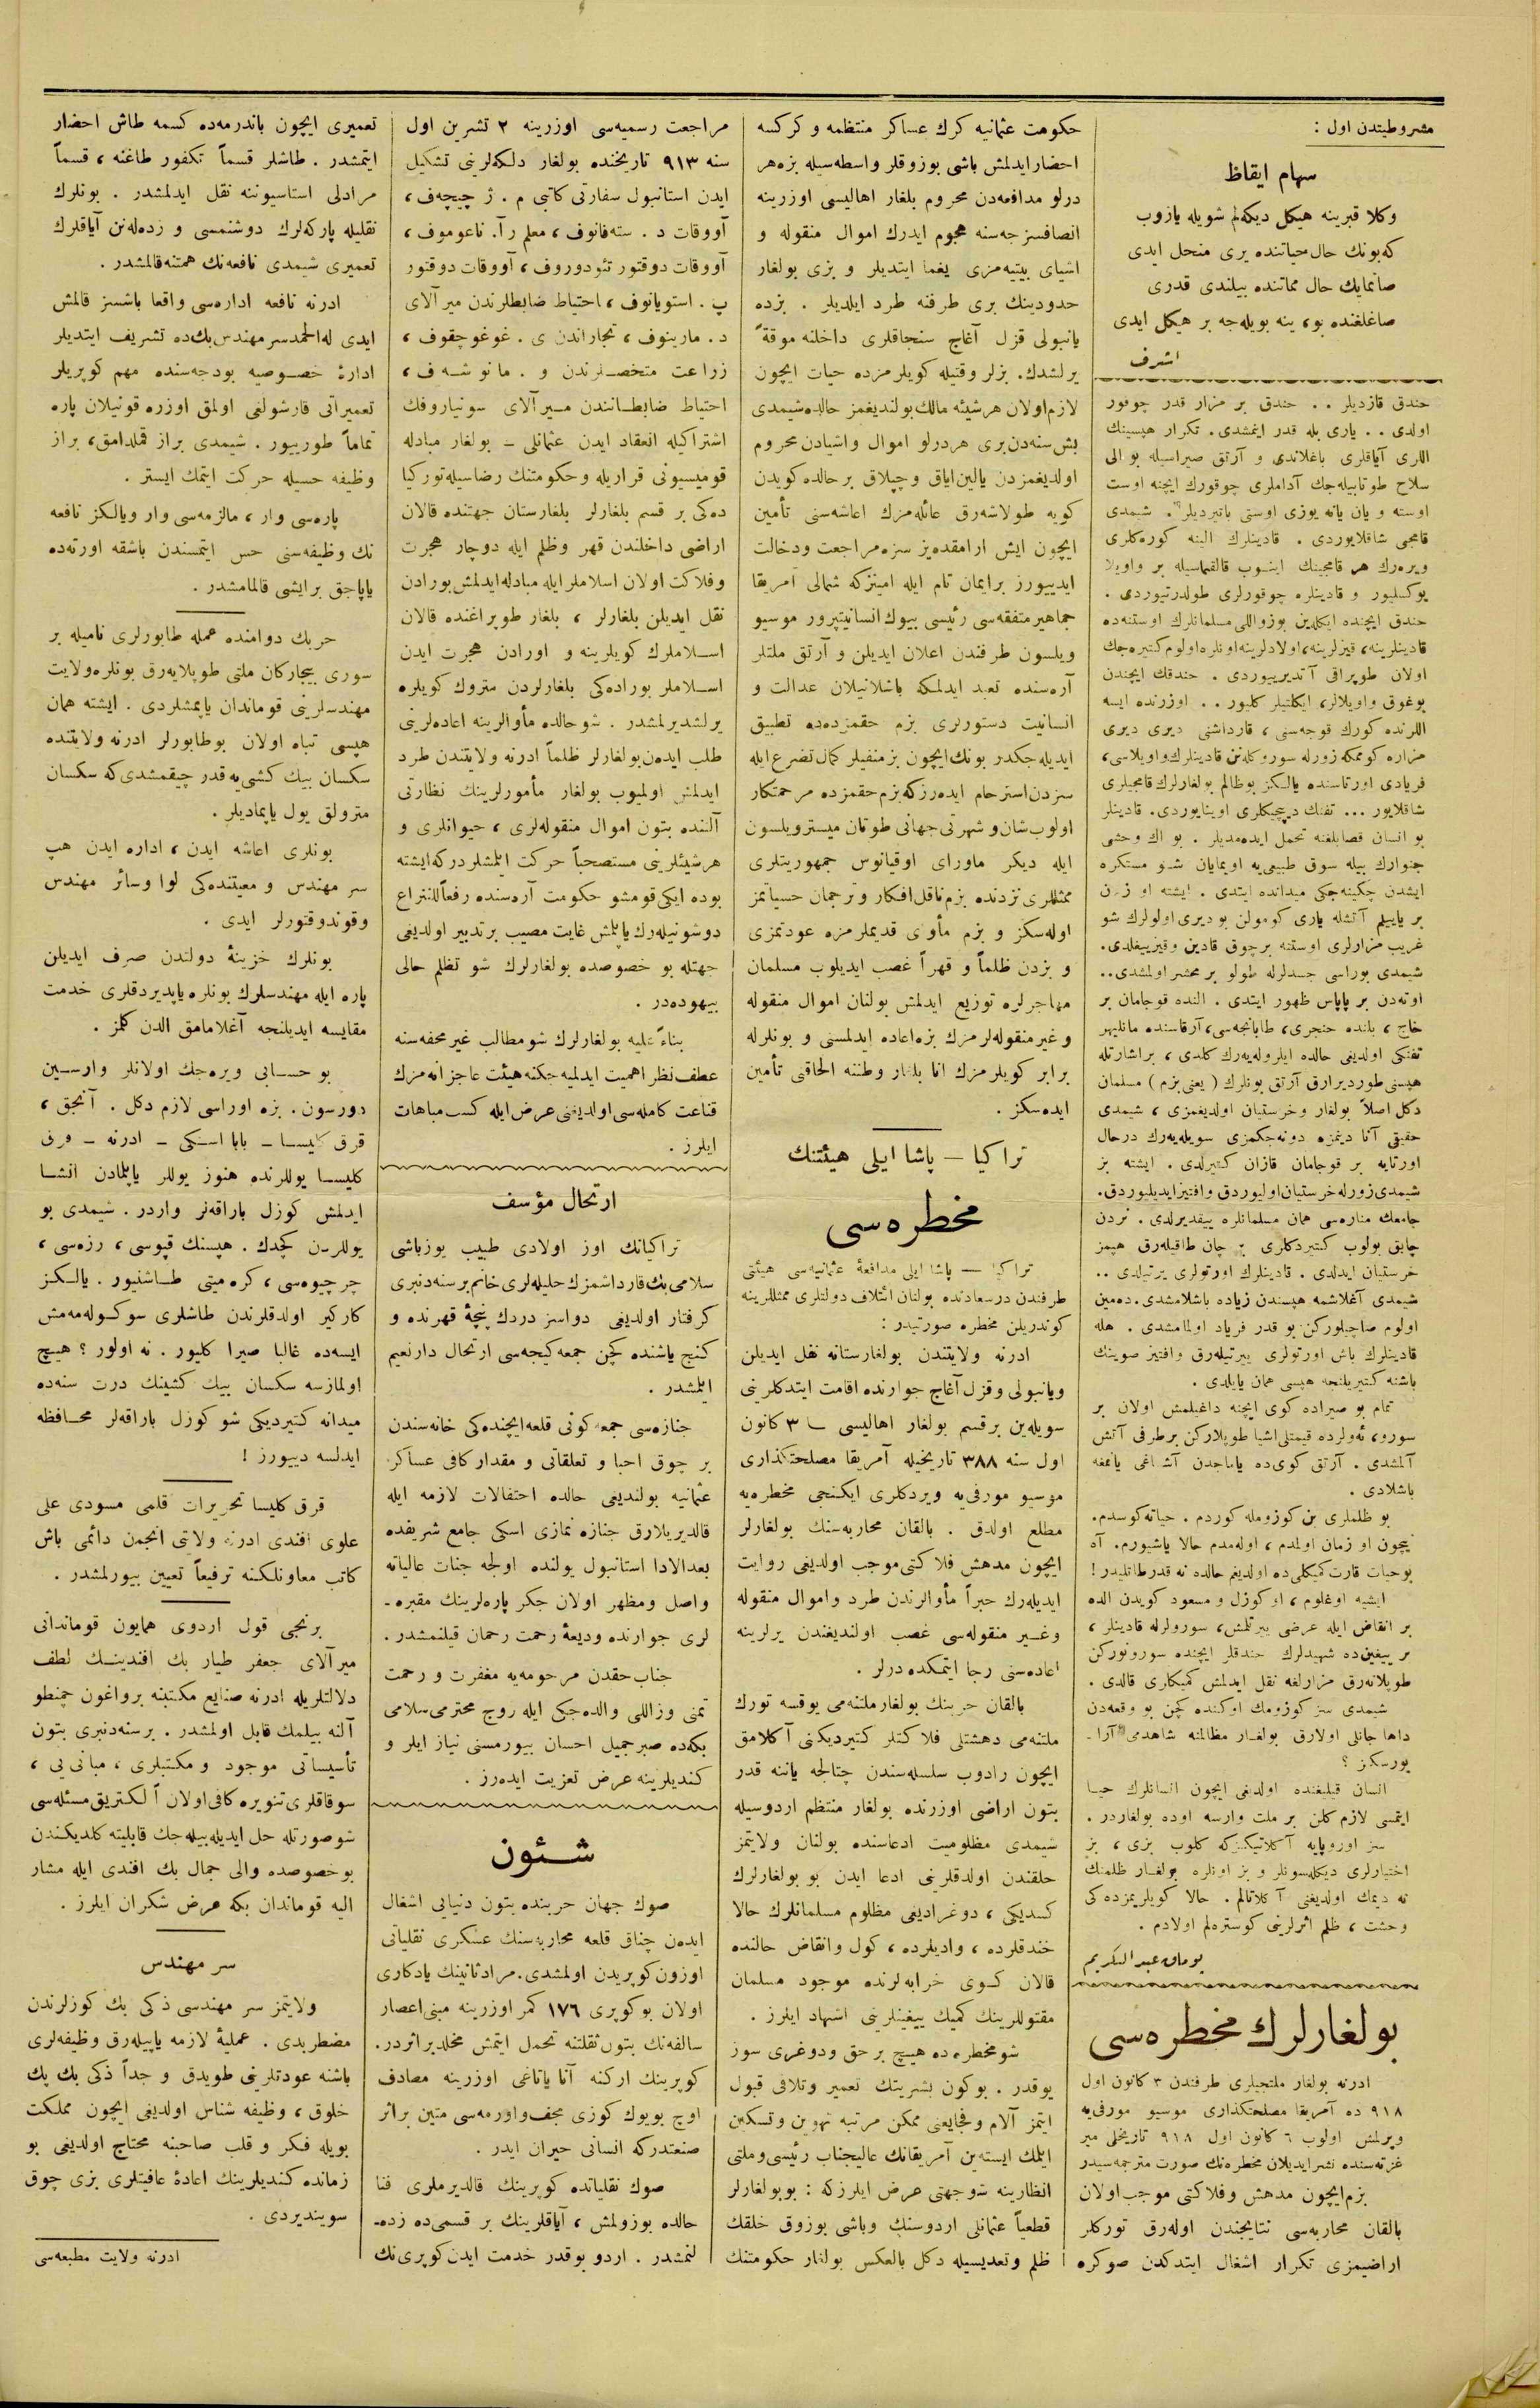 مشروطیتدن اول :
سهام ایقاظ
وکلا قبرینه هیکل دیکه‌لم شویله یازوب
که بونك حال حیاتنده یری منحل ایدی
صانمایك حال مماتنده بیلندی قدری
صاغلغنده بو، ینه بویله‌جه بر هیکل ایدی
اشرف
خندق قازدیلر . . خندق بر مزار قدر چوقور
اولدی . . یاری بله قدر ایتمشدی. تکرار هپسینك
اللری آیاقلری باغلاندی و آرتق صیراسیله بو الی
سلاح طوتابیله‌جك آداملری چوقورك ایچنه اوست
اوسته و یان یانه یوزی اوستی یاتیردیلر. شیمدی
قامچی شاقلایوردی . قادینلرك الینه کوره‌کلری
ویره‌رك هر قامچینك اینوب قالقماسیله بر واویلا
یوکسلیور و قادینلره چوقورلری طولدرتیوردی .
خندق ایچنده ایکله‌ین بوزواللی مسلمانلرك اوستنه‌ده
قادینلرینه، قیزلرینه، اولادلرینه اونلره اولوم کتیره‌جك
اولان طوپراقی آتدیرییوردی . خندقك ایچندن
بوغوق واویلالر، ایکلتیلر کلیور . . اوزرنده ایسه
اللرنده کورك قوجه‌سنی، قارداشنی دیری دیری
مزاره کوممکه زورله سوروکله‌نن قادینلرك واویلاسی،
فریادی اورتاسنده یالکز بوظالم بولغارلرك قامچیلری
شاقلایور ... تفنك دیپچیکلری اوینایوردی. قادینلر
بو انسان قصابلغنه تحمل ایده‌مدیلر . بو اك وحشی
جنوارك بیله سوق طبیعی‌یه اویمایان شو مستکره
ایشدن چکینه‌جکی میدانده ایتدی . ایشته او زمان
بر یاییلم آتشله یاری کومولن بو دیری اولولرك شو
غریب مزارلری اوستنه برچوق قادین وقیزییغلدی.
شیمدی بوراسی جسدلرله طولو بر محشر اولمشدی..
اوته‌دن بر پاپاس ظهور ایتدی . النده قوجامان بر
خاچ ، بلنده خنجری، طابانجه‌سی، آرقاسنده مانلیهر
تفنکی اولدیغی حالده ایلروله‌یه‌رك کلدی، براشارتله
هپسنی طوردیرارق آرتق بونلرك (یعنی بزم) مسلمان
دکل اصلاً بولغار وخرستیان اولدیغمزی، شیمدی
حقیقی آنا دینمزه دونه‌جکمزی سویله‌یه‌رك درحال
اورتایه بر قوجامان قازان کتیرلدی . ایشته بز
شیمدی زورله خرستیان اولیوردق وافتیز ایدیلیوردق.
جامعك مناره‌سی همان مسلمانلره ییقدیرلدی . نردن
چابق بولوب کتیردکلری بر چان طاقیله‌رق هپمز
خرستیان ایدلدی . قادینلرك اورتولری یرتیلدی ..
شیمدی آغلاشمه هپسندن زیاده باشلامشدی. ده‌مین
اولوم صاچیلورکن بو قدر فریاد اولمامشدی . هله
قادینلرك باش اورتولری ییرتیله‌رق وافتیز صوینك
باشنه کتیریلنجه هپسی همان بایلدی .
تمام بو صیراده کوی ایچنه داغیلمش اولان بر
سورو، ئه‌ولرده قیمتلی اشیا طوپلارکن برطرفی آتش
آلمشدی . آرتق کوی‌ده یاماجدن آشاغی یانمغه
باشلادی .
بو ظلملری بن کوزومله کوردم . حیاته کوسدم.
نیچون او زمان اولمدم ، اوله‌مدم حالا یاشیورم. آه
بوحیات قارت کمیکلی‌ده اولدیغم حالده نه قدر طاتلیدر!
ایشیه اوغلوم ، او کوزل و مسعود کویدن الده
بر انقاض ایله عرضی ییرتلمش، سورولرله قادینلر ،
بر ییغین‌ده شهیدلرك خندقلر ایچنده سورونورکن
طوپلانه‌رق مزارلغه نقل ایدلمش کمیکلری قالدی .
شیمدی سز کوزومك اوکنده کچن بو وقعه‌دن
داها جانلی اولارق بولغار مظالمنه شاهدمی آرا-
یورسکز ؟
انسان قیلیغنده اولدیغی ایچون انسانلرك حیا
ایتمسی لازم کلن بر ملت وارسه اوده بولغاردر .
سز اوروپایه آکلاتیکزکه کلوب بزی ، بز
اختیارلری دیکله‌سونلر و بز اونلره بولغار ظلمنك
نه دیمك اولدیغنی آکلاتالم . حالا کویلریمزده‌کی
وحشت ، ظلم اثرلرینی کوستره‌لم اولادم .
بوماق عبدالکریم
بولغارلرك مخطره‌سی
ادرنه بولغار ملتجیلری طرفندن ۳ کانون اول
۹۱۸ ده آمریقا مصلحتکذاری موسیو مورفی‌یه
ویرلمش اولوب ٦ کانون اول ۹۱۸ تاریخلی میر
غزته‌سنده نشر ایدیلان مخطره‌نك صورت مترجمه‌سیدر
بزم ایچون مدهش وفلاکتی موجب اولان
بالقان محاربه‌سی نتایجندن اوله‌رق تورکلر
اراضیمزی تکرار اشغال ایتدکدن صوکره
حکومت عثمانیه کرك عساکر منتظمه و کرکسه
احضار ایدلمش باشی بوزوقلر واسطه‌سیله بزه هر
درلو مدافعه‌دن محروم بلغار اهالیسی اوزرینه
انصافسزجه‌سنه هجوم ایدرك اموال منقوله و
اشیای بیتیه‌مزی یغما ایتدیلر و بزی بولغار
حدودینك بری طرفنه طرد ایلدیلر . بزده
یانبولی قزل آغاج سنجاقلری داخلنه موقةً
یرلشدك. بزلر وقتیله کویلرمزده حیات ایچون
لازم اولان هر شیئه مالك بولندیغمز حالده شیمدی
بش سنه‌دن بری هر درلو اموال واشیادن محروم
اولدیغمزدن یالین ایاق وچپلاق بر حالده کویدن
کویه طولاشه‌رق عائله‌مزك اعاشه‌سنی تأمین
ایچون ایش ارامقده‌یز سزه مراجعت ودخالت
ایدییورز برایمان تام ایله امینزکه شمالی آمریقا
جماهیر متفقه‌سی رئیسی بیوك انسانیتپرور موسیو
ویلسون طرفندن اعلان ایدیلن و آرتق ملتلر
آره‌سنده تعبد ایدلمکه باشلانیلان عدالت و
انسانیت دستورلری بزم حقمزده‌ده تطبیق
ایدیله‌جکدر بونك ایچون بزمنفیلر کمال تضرع ایله
سزدن استرحام ایده‌رزکه بزم حقمزده مرحمتکار
اولوب شان و شهرتی جهانی طوتان میسترویلسون
ایله دیکر ماورای اوقیانوس جمهوریتلری
ممثللری نزدنده بزم ناقل افکار وترجمان حسیاتمز
اوله‌سکز و بزم مأوای قدیملرمزه عودتمزی
و بزدن ظلماً و قهراً غصب ایدیلوب مسلمان
مهاجرلره توزیع ایدلمش بولنان اموال منقوله
وغیر منقوله‌لرمزك بزه اعاده ایدلمسنی و بونلرله
برابر کویلرمزك انا بلغار وطننه الحاقنی تأمین
ایده‌سکز .
تراکیا — پاشا ایلی هیئتنك
مخطره‌سی
تراکیا — پاشا ایلی مدافعهٔ عثمانیه‌سی هیئتی
طرفندن درسعادتده بولنان ائتلاف دولتلری ممثللرینه
کوندریلن مخطره صورتیدر :
ادرنه ولایتندن بولغارستانه نقل ایدیلن
ویانبولی وقزل آغاج جوارنده اقامت ایتدکلرینی
سویله‌ین برقسم بولغار اهالیسی ۳ کانون
اول سنه ۳۸۸ تاریخیله آمریقا مصلحتکذاری
موسیو مورفی‌یه ویردکلری ایکنجی مخطره‌یه
مطلع اولدق . بالقان محاربه‌سنك بولغارلر
ایچون مدهش فلاکتی موجب اولدیغی روایت
ایدیله‌رك جبراً مأوالرندن طرد واموال منقوله
وغیر منقوله‌سی غصب اولندیغندن یرلرینه
اعاده‌سنی رجا ایتمکده‌درلر .
بالقان حربنك بولغار ملتنه‌می یوقسه تورك
ملتنه‌می دهشتلی فلاکتلر کتیردیکنی آکلامق
ایچون رادوب سلسله‌سندن چتالجه یاننه قدر
بتون اراضی اوزرنده بولغار منتظم اردوسیله
شیمدی مظلومیت ادعاسنده بولنان ولایتمز
خلقندن اولدقلرینی ادعا ایدن بو بولغارلرك
کسدیکی ، دوغرادیغی مظلوم مسلمانلرك حالا
خندقلرده ، وادیلرده ، کول وانقاض حالنده
قالان کوی خرابه‌لرنده موجود مسلمان
مقتوللرینك کمیك ییغینلرینی اشهاد ایلرز .
شو مخطره‌ده هیچ بر حق ودوغری سوز
یوقدر . بوکون بشریتك تعمیر وتلافی قبول
ایتمز آلام وفجایعنی ممکن مرتبه تهوین وتسکین
ایتمك ایسته‌ین آمریقانك عالیجناب رئیسی وملتی
انظارینه شوجهتی عرض ایلرزکه : بوبولغارلر
قطعیاً عثمانلی اردوسنك وباشی بوزوق خلقك
ظلم وتعدیسیله دکل بالعکس بولغار حکومتنك
مراجعت رسمیه‌سی اوزرینه ۲ تشرین اول
سنه ۹۱۳ تاریخنده بولغار دلکه‌لرینی تشکیل
ایدن استانبول سفارتی کاتبی م . ژ چیچه‌ف ،
آووقات د . سته‌فانوف ، معلم رآ. ناعوموف ،
آووقات دوقتور تئودوروف ، آووقات دوقتور
پ . استویانوف ، احتیاط ضابطلرندن میر آلای
د . مارینوف ، تجاراندن ی . غوغوچقوف ،
زراعت متخصصلرندن و . مانوشه‌ف ،
احتیاط ضابطانندن میر آلای سونیاروفك
اشتراکیله انعقاد ایدن عثمانلی - بولغار مبادله
قومیسیونی قراریله وحکومتنك رضاسیله تورکیا
ده‌کی بر قسم بلغارلر بلغارستان جهتنده قالان
اراضی داخلندن قهر وظلم ایله دوچار هجرت
وفلاکت اولان اسلاملر ایله مبادله ایدلمش بورادن
نقل ایدیلن بلغارلر ، بلغار طوپراغنده قالان
اسلاملرك کویلرینه و اورادن هجرت ایدن
اسلاملر بوراده‌کی بلغارلردن متروك کویلره
یرلشدیرلمشدر . شو حالده مأوالرینه اعاده‌لرینی
طلب ایده‌ن بولغارلر ظلماً ادرنه ولایتندن طرد
ایدلمش اولمیوب بولغار مأمورلرینك نظارتی
آلتنده بتون اموال منقوله‌لری ، حیوانلری و
هر شیئلرینی مستصحباً حرکت ایتمشلردرکه ایشته
بوده ایکی قومشو حکومت آره‌سنده رفعاً للنزاع
دوشونیله‌رك یاپلمش غایت مصیب بر تدبیر اولدیغی
جهتله بو خصوصده بولغارلرك شو تظلم حالی
بیهوده‌در .
بناءً علیه بولغارلرك شو مطالب غیر محقه‌سنه
عطف نظر اهمیت ایدلمیه‌جکنه هیئت عاجزانه‌مزك
قناعت کامله‌سی اولدیغنی عرض ایله کسب مباهات
ایلرز .
ارتحال مؤسف
تراکیانك اوز اولادی طبیب یوزباشی
سلامی بك قارداشمزك حلیله‌لری خانم بر سنه‌دنبری
گرفتار اولدیغی دواسز دردك پنجهٔ قهرنده و
کنج یاشنده کچن جمعه کیجه‌سی ارتحال دارنعیم
ایتمشدر .
جنازه‌سی جمعه کونی قلعه ایچنده‌کی خانه‌سندن
بر چوق احبا و تعلقاتی و مقدار کافی عساکر
عثمانیه بولندیغی حالده احتفالات لازمه ایله
قالدیریلارق جنازه نمازی اسکی جامع شریفده
بعدالادا استانبول یولنده اولجه جنات عالیاته
واصل ومظهر اولان جکر پاره‌لرینك مقبره-
لری جوارنده ودیعهٔ رحمت رحمان قیلنمشدر .
جناب حقدن مرحومه‌یه مغفرت و رحمت
تمنی وزاللی والده‌جکی ایله روج محترمی سلامی
بکه‌ده صبرجمیل احسان بیورمسنی نیاز ایلر و
کندیلرینه عرض تعزیت ایده‌رز .
شئون
صوك جهان حربنده بتون دنیایی اشغال
ایده‌ن چناق قلعه محاربه‌سنك عسکری نقلیاتی
اوزون کوپریدن اولمشدی . مراد ثانینك یادکاری
اولان بو کوپری ۱۷٦ کمر اوزرینه مبنی اعصار
سالفه‌نك بتون ثقلتنه تحمل ایتمش مخلد بر اثردر .
کوپرینك ارکنه آنا یاتاغی اوزرینه مصادف
اوچ بویوك کوزی مجف واورمه‌سی متین بر اثر
صنعتدرکه انسانی حیران ایدر .
صوك نقلیاتده کوپرینك قالدیرملری فنا
حالده بوزولمش ، آیاقلرینك بر قسمی‌ده زده-
لنمشدر . اردو بوقدر خدمت ایدن کوپری نك
تعمیری ایچون باندرمه‌ده کسمه طاش احضار
ایتمشدر . طاشلر قسماً تکفور طاغنه ، قسماً
مرادلی استاسیوننه نقل ایدلمشدر . بونلرك
نقلیله پارکه‌لرك دوشنمسی و زده‌له‌نن آیاقلرك
تعمیری شیمدی نافعه‌نك همتنه قالمشدر .
ادرنه نافعه اداره‌سی واقعا باشسز قالمش
ایدی لەالحمد سر مهندس بك‌ده تشریف ایتدیلر
ادارهٔ خصوصیه بودجه‌سنده مهم کوپریلر
تعمیراتی قارشولغی اولمق اوزره قونیلان پاره
تماماً طورییور . شیمدی براز قملدامق، براز
وظیفه حسیله حرکت ایتمك ایستر .
پاره‌سی وار ، مالزمه‌سی وار ویالکز نافعه
نك وظیفه‌سنی حس ایتمسندن باشقه اورته‌ده
یاپاجق بر ایشی قالمامشدر .
حربك دوامنده عمله طابورلری نامیله بر
سوری بیچارکان ملتی طوپلایه‌رق بونلره ولایت
مهندسلرینی قوماندان یاپمشلردی . ایشته همان
هپسی تباه اولان بوطابورلر ادرنه ولایتنده
سکسان بیك کشی‌یه قدر چیقمشدی که سکسان
مترولق یول یاپمادیلر .
بونلری اعاشه ایدن ، اداره ایدن هپ
سر مهندس و معیتنده‌کی لوا وسائر مهندس
وقوندوقتورلر ایدی .
بونلرك خزینهٔ دولتدن صرف ایدیلن
پاره ایله مهندسلرك بونلره یاپدیردقلری خدمت
مقایسه ایدیلنجه آغلامامق الدن کلمز .
بو حسابی ویره‌جك اولانلر وارسین
دورسون. بزه اوراسی لازم دکل . آنجق ،
قرق کلیسا - بابا اسکی - ادرنه - قرق
کلیسا یوللرنده هنوز یوللر یاپلمادن انشا
ایدلمش کوزل باراقه‌لر واردر . شیمدی بو
یوللردن کچدك . هپسنك قپوسی ، رزه‌سی ،
چرچیوه‌سی ، کره‌میتی طاشنیور . یالکز
کارکیر اولدقلرندن طاشلری سوکوله‌مه‌مش
ایسه‌ده غالبا صیرا کلیور . نه اولور ؟ هیچ
اولمازسه سکسان بیك کشینك درت سنه‌ده
میدانه کتیردیکی شو کوزل باراقه‌لر محافظه
ایدلسه دییورز !
قرق کلیسا تحریرات قلمی مسودی علی
علوی افندی ادرنه ولایتی انجمن دائمی باش
کاتب معاونلکنه ترفیعاً تعیین بیورلمشدر .
برنجی قول اردوی همایون قوماندانی
میرآلای جعفر طیار بك افندینك لطف
دلالتلریله ادرنه صنایع مکتبنه برواغون چمنطو
آلنه بیلمك قابل اولمشدر . برسنه‌دنبری بتون
تأسیساتی موجود و مکتبلری ، مبانی‌یی ،
سوقاقلری تنویره کافی اولان آلکتریق مسئله‌سی
شوصورتله حل ایدیله‌بیله‌جك قابلیته کلدیکندن
بوخصوصده والی جمال بك افندی ایله مشار
الیه قوماندان بکه عرض شکران ایلرز .
سر مهندس
ولایتمز سر مهندسی ذکی بك کوزلرندن
مضطربدی . عملیهٔ لازمه یاپیله‌رق وظیفه‌لری
باشنه عودتلرینی طویدق و جداً ذکی بك پك
خلوق ، وظیفه شناس اولدیغی ایچون مملکت
بویله فکر و قلب صاحبنه محتاج اولدیغی بو
زمانده کندیلرینك اعادهٔ عافیتلری بزی چوق
سویندیردی .
ادرنه ولایت مطبعه‌سی